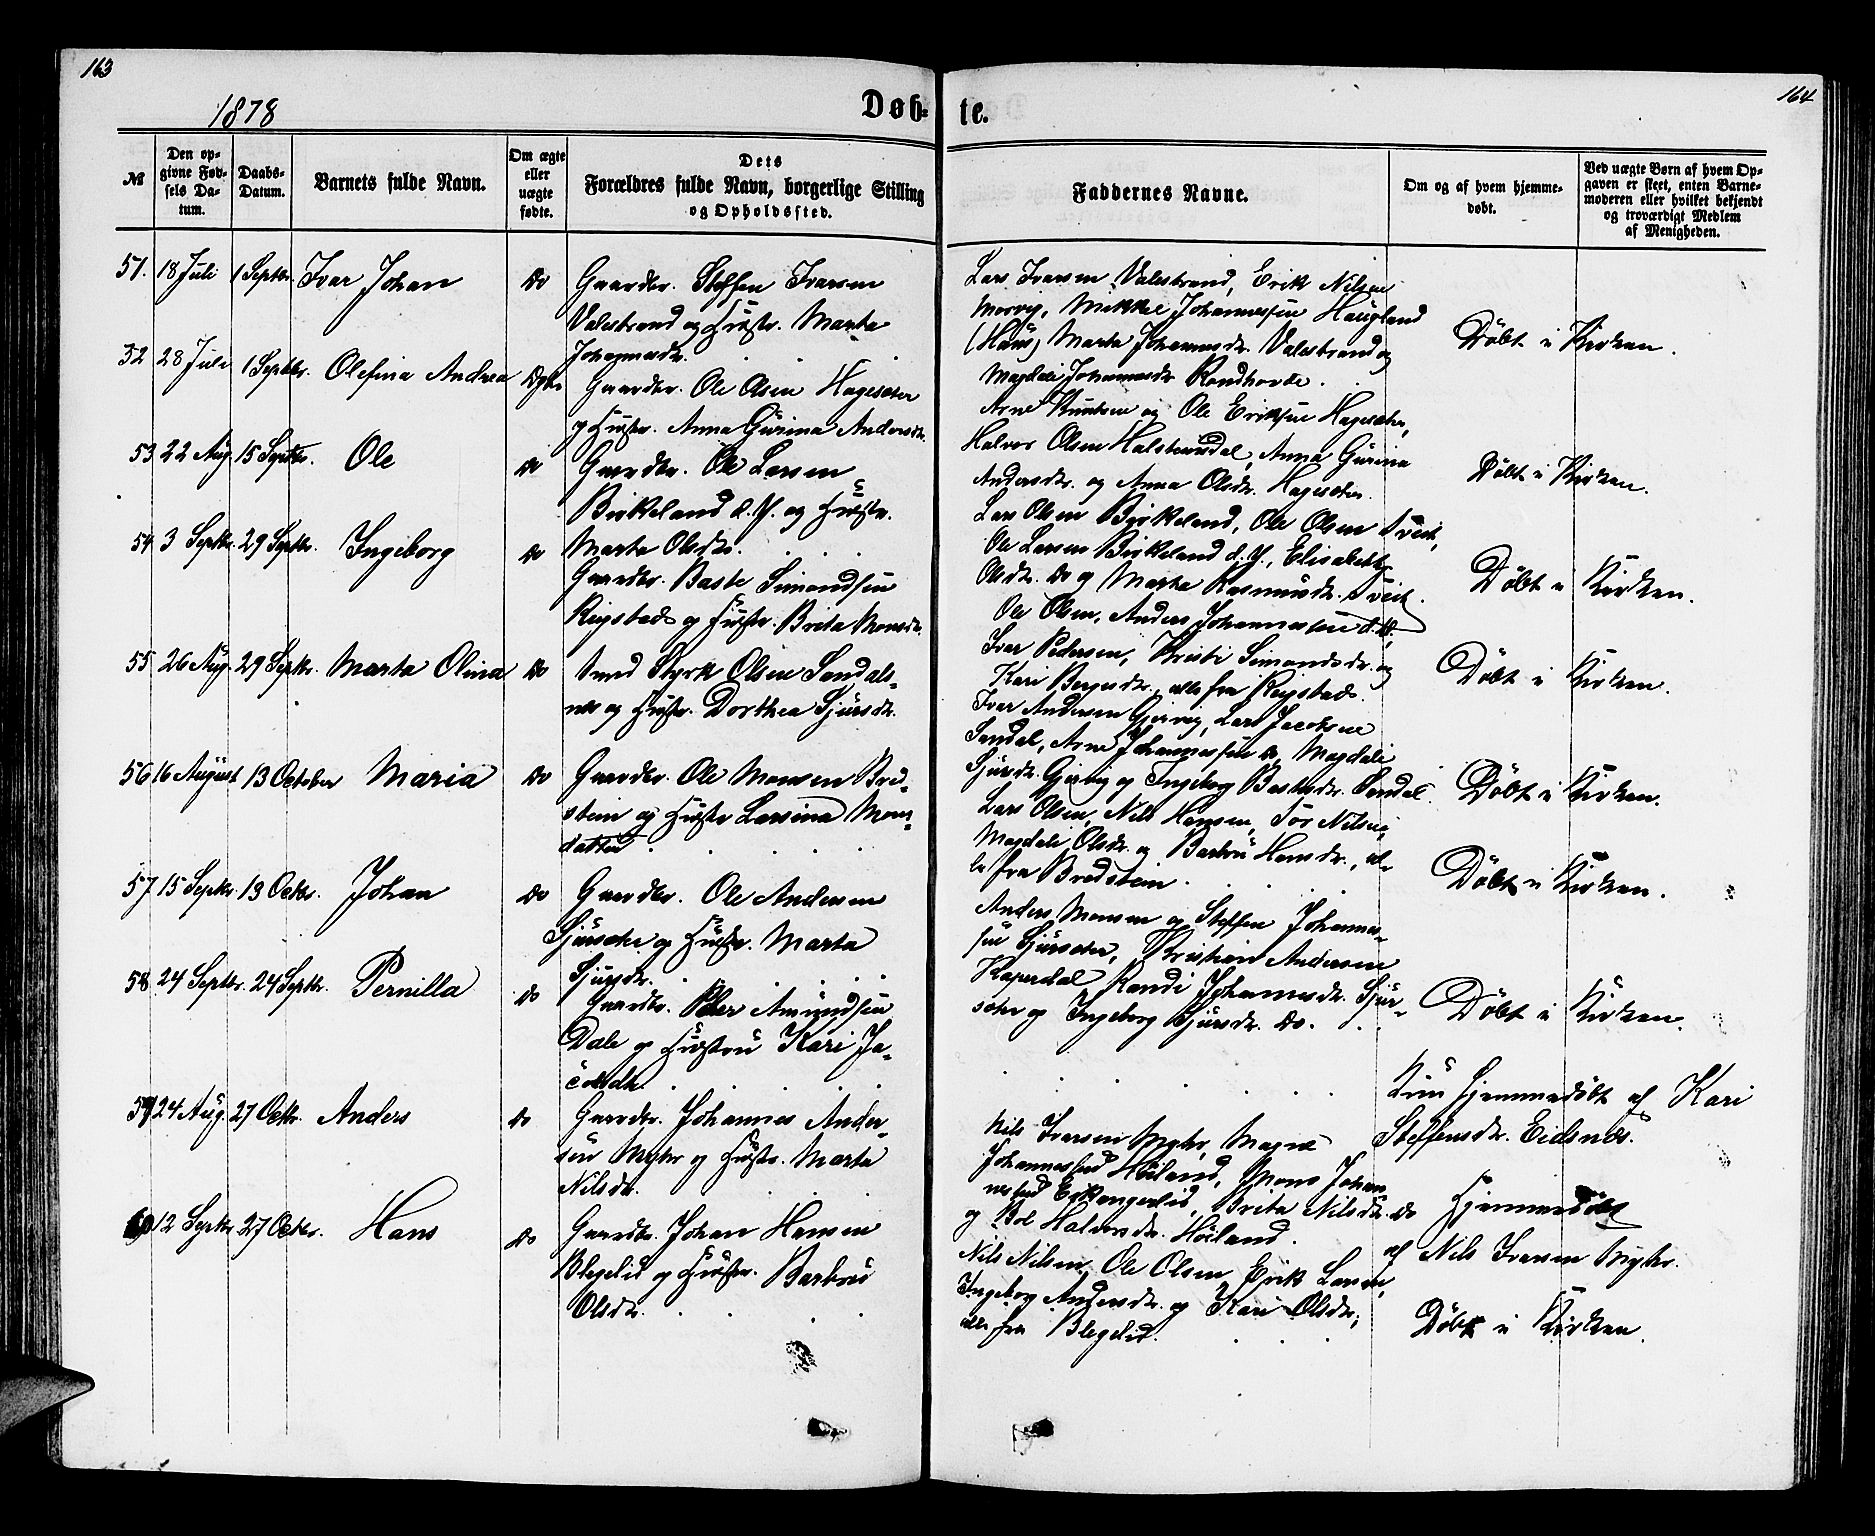 163
164
1878
Døb-
te.
№
Den op-
givne Fød-
sels Da-
tum.
Daabs-
Datum.
Barnets fulde Navn.
Om ægte
eller
uægte
fødte.
Dets
Forældres fulde Navn, borgerlige Stilling
og Opholdssted.
Faddernes Navne.
Om og af hvem hjemme-
døbt.
Ved uægte Børn af hvem Op-
gaven er skeet, enten Barne-
moderen eller hvilket bekjendt
og troværdigt Medlem
af Menigheden.
51. 18 Juli 1 Septbr. Ivar Johan Do
Gaardbr. Steffen Ivarsen
Valestrand og Hustr. Marta
Johannesdr.
Lars Ivarsen Valestrand, Erik Nilsen
Morvig, Mikkel Johannessen Haugland
(Haus) Marta Johannesdr. Valestrand og
Magdeli Johannesdr. Rondhovde.
Döbt i Kirken.
52 28 Juli 1 Septbr. Olefina Andrea Ægte
Gaardbr. Ole Olsen Hagesæter
og Hustr. Anna Gurina Andersdr.
Arne Knutsen og Ole Eriksen Hagesæter,
Halvor Olsen Halstensdal, Anna Gurina
Andersdr. og Anna Olsdr. Hagesæter.
Döbt i Kirken.
53 22 Aug. 15 Septbr. Ole Do
Gaardbr. Ole Larsen
Birkeland d. Y. og Hustr.
Marta Olsdr.
Lars Olsen Birkeland, Ole Olsen Tveit,
Ole Larsen Birkeland d. Y., Elisabeth
Olsdr. Do og Marta Rasmusdr. Tveit.
Döbt i Kirken.
54 3 Septbr. 29 Septbr. Ingeborg Do
Gaardbr. Baste Simondsen
Reigstad og Hustr. Brita Monsdr.
Ole Olsen, Anders Johannessen d. Æ,
Ivar Pedersen, Kristi Simondsdr. og
Kari Børgesdr., alle fra Reigstad.
Döbt i Kirken.
55 26 Aug. 29 Septbr. Marta Olina Do
Smed Styrk Olsen Sandals-
nes og Hustr. Dorthea Sjursdr.
Ivar Andersen Gjervig, Lars Jacobsen
Sandal, Arne Johannessen Do, Magdeli
Sjursdr. Gjervig og Ingeborg Bastesdr. Sandal.
Döbt i Kirken.
56 16 August 13 October Maria Do
Gaardbr. Ole Monsen Bred-
stein og Hustr. Larsina Mons-
datter
Lars Olsen, Nils Hansen, Tor Nilsen,
Magdeli Olsdr. og Barbru Hansdr., al-
le fra Bredstein.
Döbt i Kirken.
57. 15 Septbr. 13 Octbr. Johan Do
Gaardbr. Ole Andersen
Sjursæter og Hustr. Marta
Sjursdr.
Anders Monsen og Steffen Johannes-
sen Sjursæter, Kristian Andersen
Kaperdal Randi Johannesdr. Sjur-
sæter og Ingeborg Sjursdr. Do.
Döbt i Kirken.
58 24 Septbr. 24 Septbr. Pernilla Do
Gaardbr. Peder Amundsen
Dale og Hustru Kari Ja-
cobsdr.
Kun Hjemmedöbt af Kari
Steffensdr. Eidsnæs.
59 24 Aug. 27 Octbr. Anders Do
Gaardbr. Johannes Ander-
sen Myhr og Hustr. Marta
Nilsdr.
Nils Ivarsen Myhr, Magne
Johannessen Höiland, Mons Johan-
nessen Erstangerlid, Brita Nilsdr. Do
og Bol Halvorsdr. Höiland.
Hjemmedöbt
af Nils Ivarsen Myhr.
60 12 Septbr. 27 Octbr. Hans Do
Gaardbr. Johan Hansen
Blegelid og Hustr. Barbru
Olsdr.
Nils Nilsen, Ole Olsen, Erik Larsen,
Ingeborg Andersdr. og Kari Olsdr.,
alle fra Blegelid.
Döbt i Kirken.